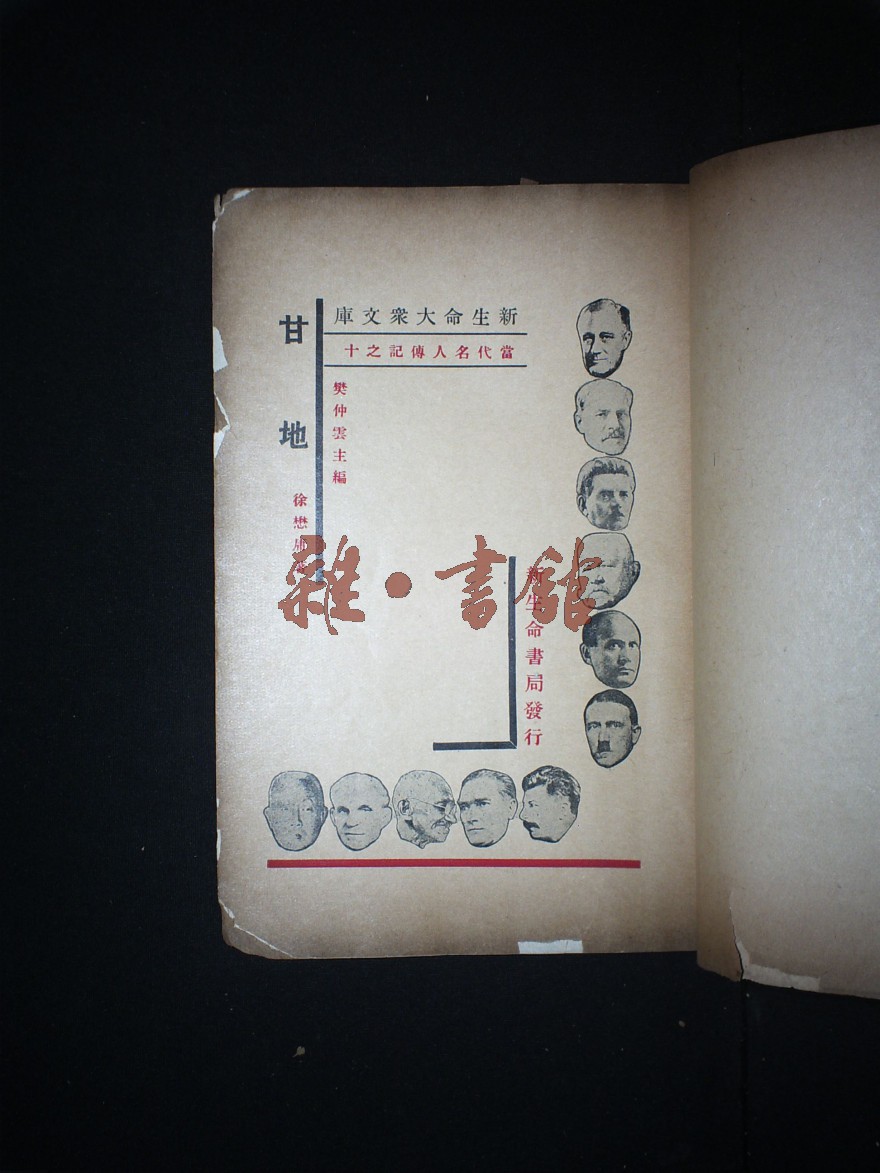 新生命大衆文庫
當代名人傳記之十
樊仲雲主編
甘地
徐懋庸著
新生命書局發行
雜·書館